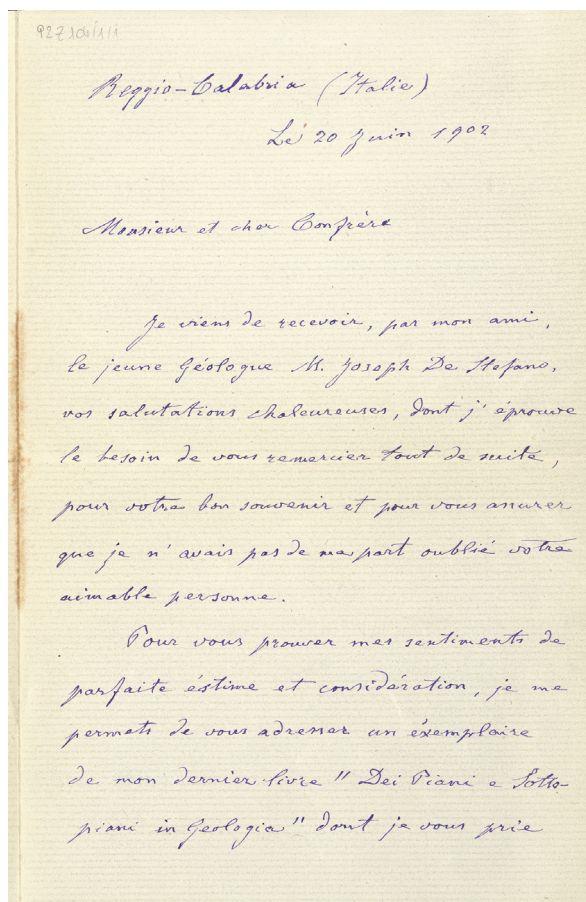 927104/1/1
Reggio-Calabria (Italie)
Le 20 Juin 1902
Monsieur et cher Confrère
Je viens de recevoir, par mon ami,
le jeune Géologue M. Joseph De Stefano,
vos salutations chaleureuses, dont j'éprouve
le besoin de vous remercier tout de suite,
pour votre bon souvenir et pour vous assurer
que je n'avais pas de ma part oublié votre
aimable personne.
Pour vous prouver mes sentiments de
parfaite éstime et considération, je me
permets de vous adresser un éxemplaire
de mon dernier livre "Dei Piani e Sotto-
piani in Geologia" dont je vous prie